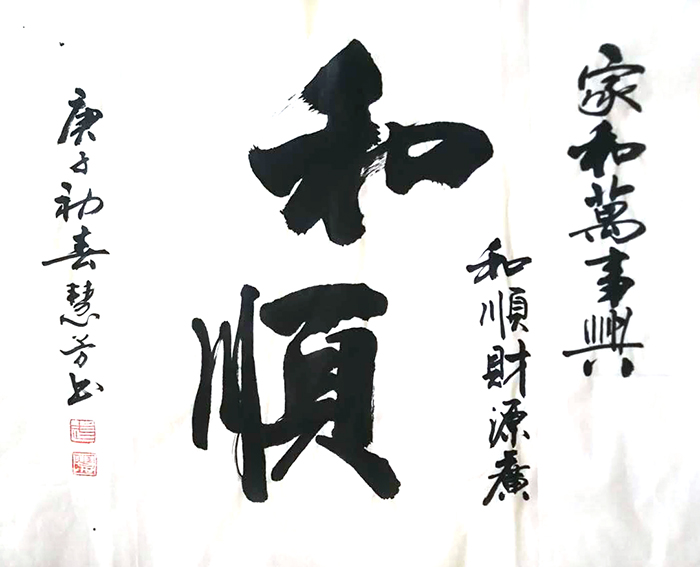 家和萬事興
和順財源廣
和順
庚子初春慧芳书